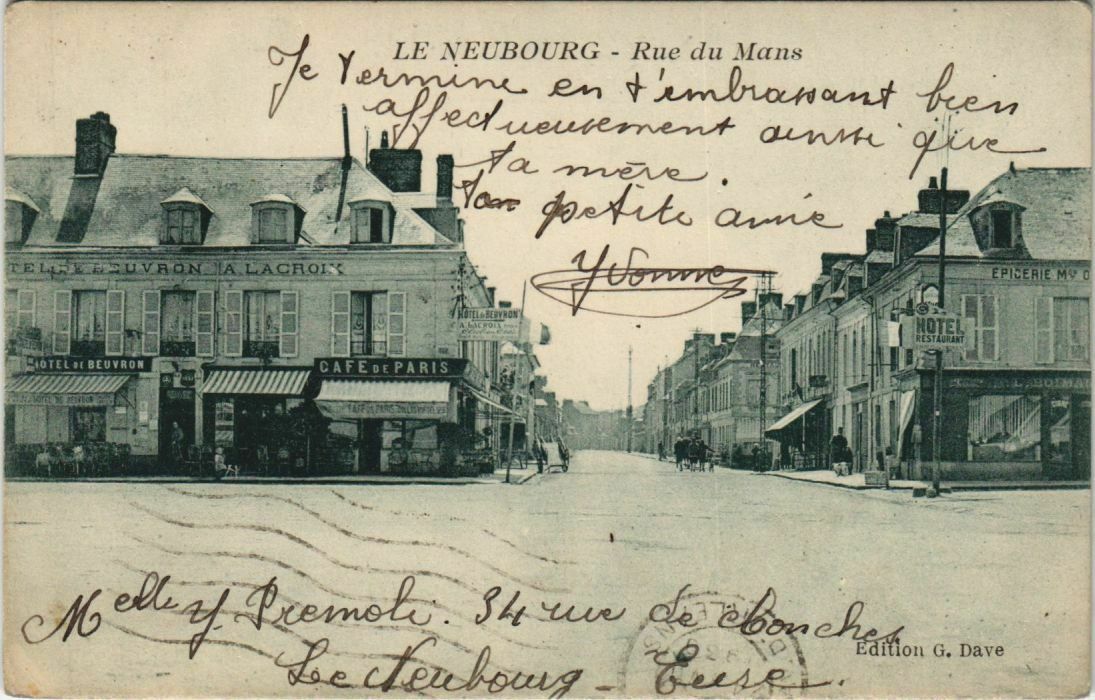 LE NEUBOURG - Rue du Mans
Je termine en t'embrassant bien
affectueusement ainsi que
ta mère.
ton petite amie
Yvonne
HOTEL DE BEUVRON A LACROIX
HOTEL DE BEUVRON
CAFÉ DE PARIS
HOTEL DE BEUVRON
A. LACROIX
CAFÉ DE PARIS
ÉPICERIE
HOTEL
RESTAURANT
Melle Y. Premoli. 34 rue de Conches
Le Neubourg - Eure.
Edition G. Dave